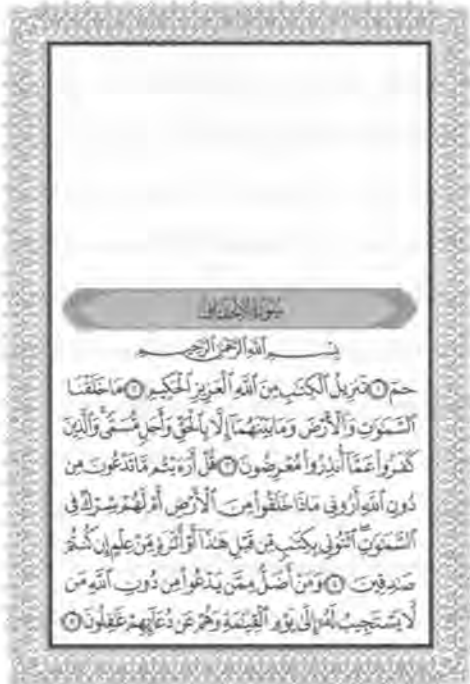 سُورَةُ الأَحْقَافِ
بِسْمِ اللَّهِ الرَّحْمَٰنِ الرَّحِيمِ
حمٓ ۝١ تَنزِيلُ ٱلْكِتَٰبِ مِنَ ٱللَّهِ ٱلْعَزِيزِ ٱلْحَكِيمِ ۝٢ مَا خَلَقْنَا
ٱلسَّمَٰوَٰتِ وَٱلْأَرْضَ وَمَا بَيْنَهُمَآ إِلَّا بِٱلْحَقِّ وَأَجَلٍ مُّسَمًّى ۚ وَٱلَّذِينَ
كَفَرُوا۟ عَمَّآ أُنذِرُوا۟ مُعْرِضُونَ ۝٣ قُلْ أَرَءَيْتُم مَّا تَدْعُونَ مِن
دُونِ ٱللَّهِ أَرُونِى مَاذَا خَلَقُوا۟ مِنَ ٱلْأَرْضِ أَمْ لَهُمْ شِرْكٌ فِى
ٱلسَّمَٰوَٰتِ ۖ ٱئْتُونِى بِكِتَٰبٍ مِّن قَبْلِ هَٰذَآ أَوْ أَثَٰرَةٍ مِّنْ عِلْمٍ إِن كُنتُمْ
صَٰدِقِينَ ۝٤ وَمَنْ أَضَلُّ مِمَّن يَدْعُوا۟ مِن دُونِ ٱللَّهِ مَن
لَّا يَسْتَجِيبُ لَهُۥٓ إِلَىٰ يَوْمِ ٱلْقِيَٰمَةِ وَهُمْ عَن دُعَآئِهِمْ غَٰفِلُونَ ۝٥